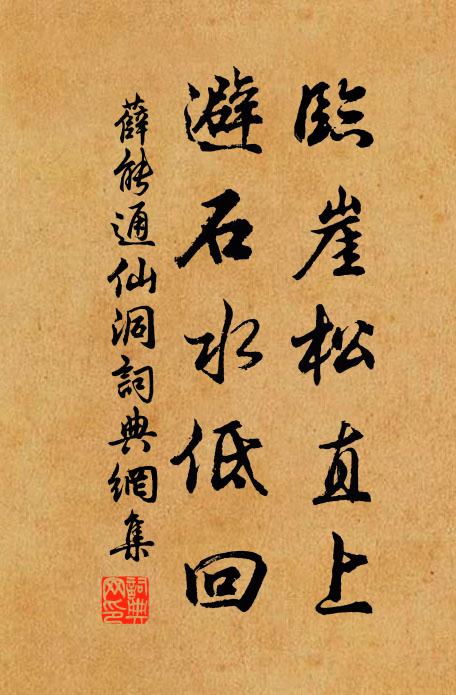 臨崖松直上
避石水低回
薛能通仙洞詞典網集
詞典网印